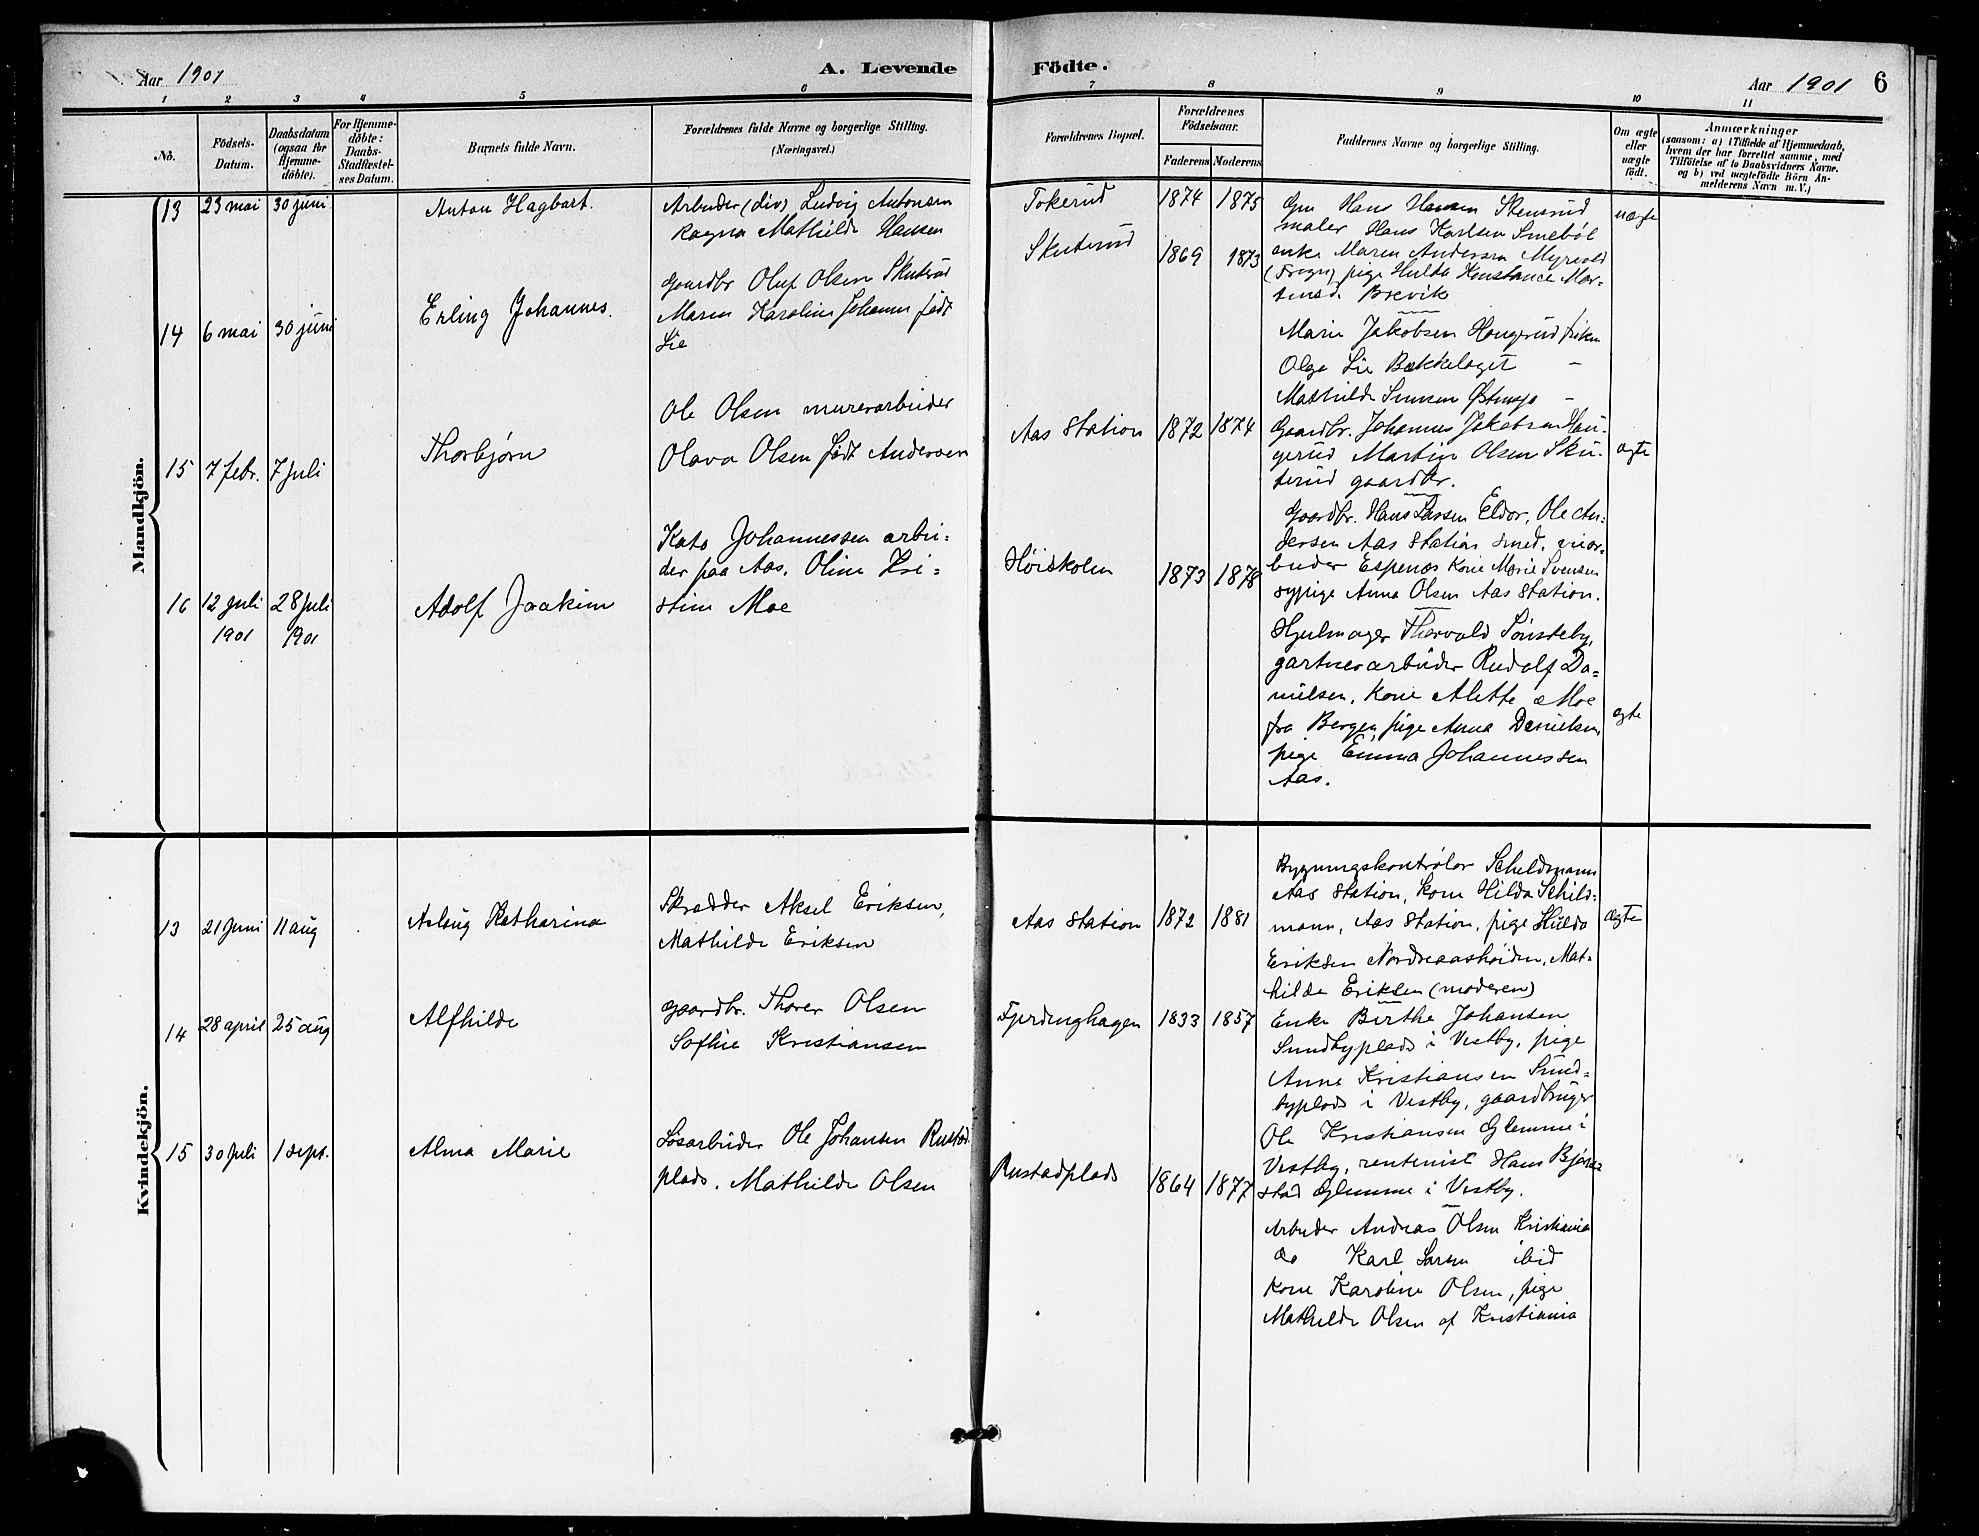 Aar 1901
A. Levende
Födte.
Aar 1901
6
1 2 3 4 5 6 7 8 9 10 11
No.
Födsels-
Datum.
Daabsdatum
(ogsaa for
Hjemme-
döbte).
For Hjemme-
döbte:
Daabs-
Stadfæstel-
ses Datum.
Barnets fulde Navn.
Forældrenes fulde Navne og borgerlige Stilling.
(Næringsvei.)
Forældrenes Bopæl.
Forældrenes
Födselsaar.
Faderens Moderens
Faddernes Navne og borgerlige Stilling.
Om ægte
eller
uægte
födt.
Anmærkninger
(saasom: a) i Tilfælde af Hjemmedaab,
hvem der har forrettet samme, med
Tilföielse af to Daabsvidners Navne,
og b) ved uægtefödte Börn An-
melderens Navn m. V.)
Mandkjön.
13 23 mai 30 juni
Anton Hagbart.
Arbeider (div) Ludvig Antonsen
Ragna Mathilde Hansen
Tokerud
1874 1875
Hans Hansen Stensrud
maler Hans Karlsen Smeböl
enke Maren Andersen Myrvold
(Frogn) pige Hulda Konstance Mor-
tensd. Brevik
uægte
14 6 mai 30 juni
Erling Johannes.
Gaardbr Oluf Olsen Skuterud
Maren Karoline Johanne født
Lie
Skuterud
1869 1873
Marie Jakobsen Haugerud frøken
Olga Lie Bækkelaget –
Mathilde Simsen –
Gaardbr. Johannes Jakobsen Hau-
gerud Martin Olsen Sku-
terud gaardbr.
15 7 febr. 7 juli
Thorbjørn
Ole Olsen murerarbeider
Olava Olsen født Andersen
Aas Station
1872 1874
Gaardbr. Hans Larsen Eldor, Ole An-
dersen Aas Station smed,
beider Espenæs Kone Marie Svensen
sypige Anna Olsen Aas Station.
ægte
16 12 juli 28 juli
1901 1901
Adolf Joakim
Kato Johannessen arbei-
der paa Aas, Oline Kri-
stine Moe
Høiskolen
1873 1878
Hjulmager Thorvald Tønsteby,
gartnerarbeider Rudolf Da-
nielsen, Kone Alette Moe
fra Bergen, pige Anna Danielsen
pige Emma Johannessen
Aas.
ægte
Kvindekjön.
13 21 Juni 11 aug
Aslaug Katharina
Skrædder Aksel Eriksen,
Mathilde Eriksen
Aas Station
1872 1881
Bygningskontrolør Schildmann
Aas Station, Kone Hilda Schild-
mann, Aas Station, pige Hulda
Eriksen Nordreaashøiden, Mat-
hilde Eriksen (moderen)
ægte
14 28 april 25 aug
Alfhilde
gaardbr. Thorer Olsen
Sofhie Kristiansen
Fjerdinghagen
1833 1857
Enke Birthe Johansen
Sundbyplads i Vestby, pige
Anne Kristiansen Sund-
byplads i Vestby, gaardbruger
Ole Kristiansen Glemme i
Vestby, rentenist Hans Bjørn-
stad Glemme i Vestby.
15 30 Juli 1 sept.
Alma Marie
Løsarbeider Ole Johansen Rustad
plads. Mathilde Olsen
Rustadplads
1864 1877
Arbeider Andreas Olsen Kristiania
do Karl Larsen ibid
Kone Karoline Olsen, pige
Mathilde Olsen af Kristiania